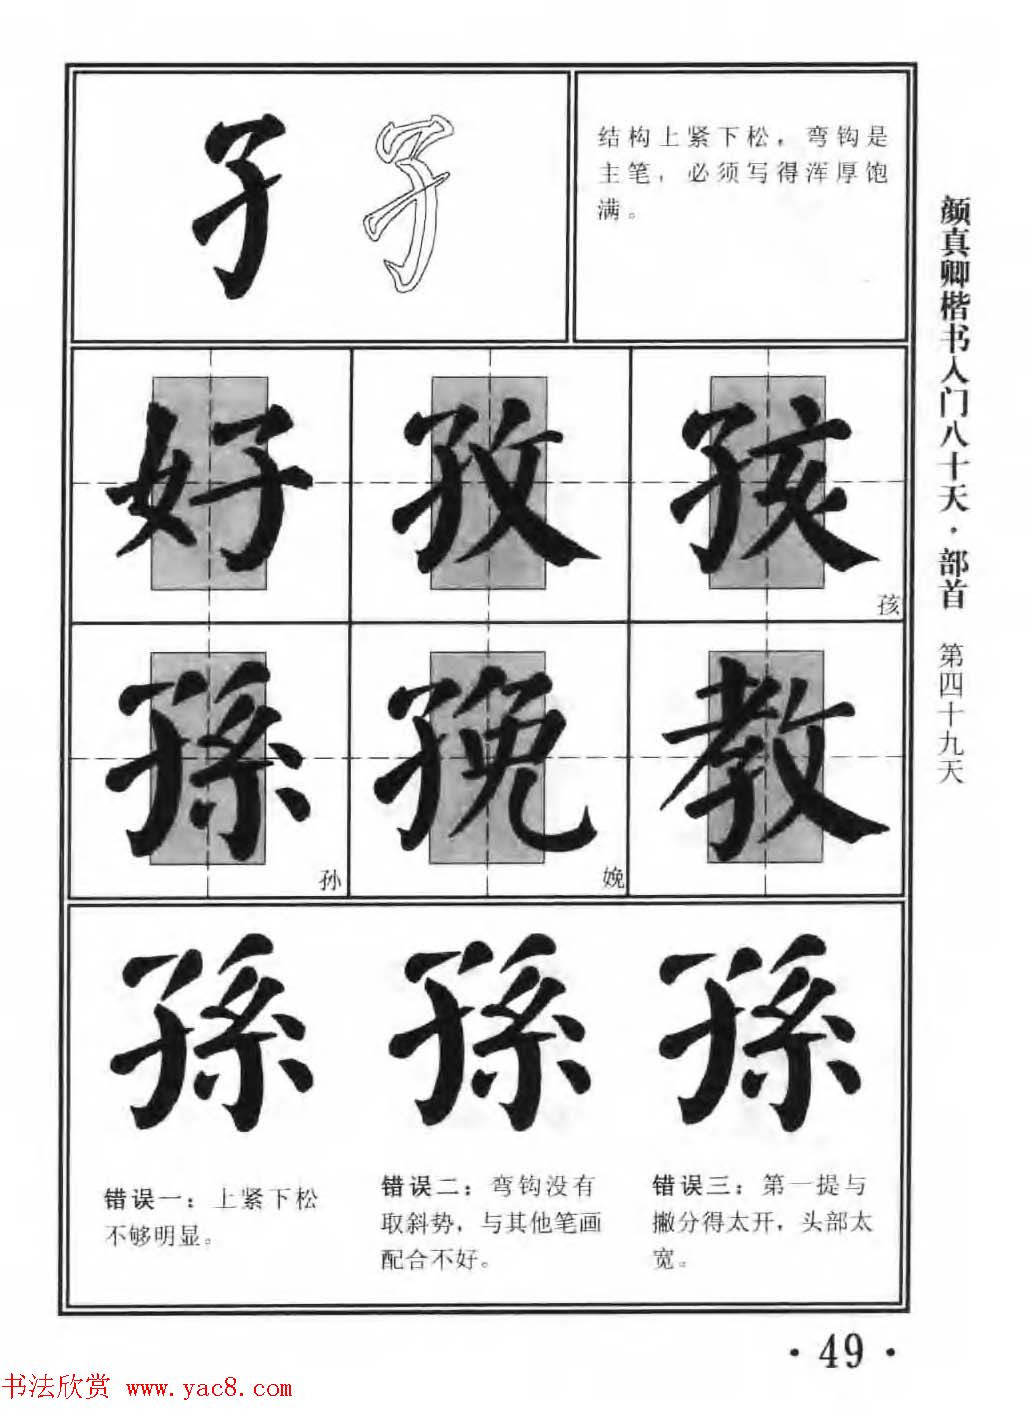 孑
结构上紧下松，弯钩是
主笔，必须写得浑厚饱
满。
好 孜 孩
孩
孫 㝃 教
孙 娩
孫 孫 孫
错误一：上紧下松
不够明显。
错误二：弯钩没有
取斜势，与其他笔画
配合不好。
错误三：第一提与
撇分得太开，头部太
宽。
颜真卿楷书入门八十天·部首 第四十九天
·49·
书法欣赏 www.yac8.com